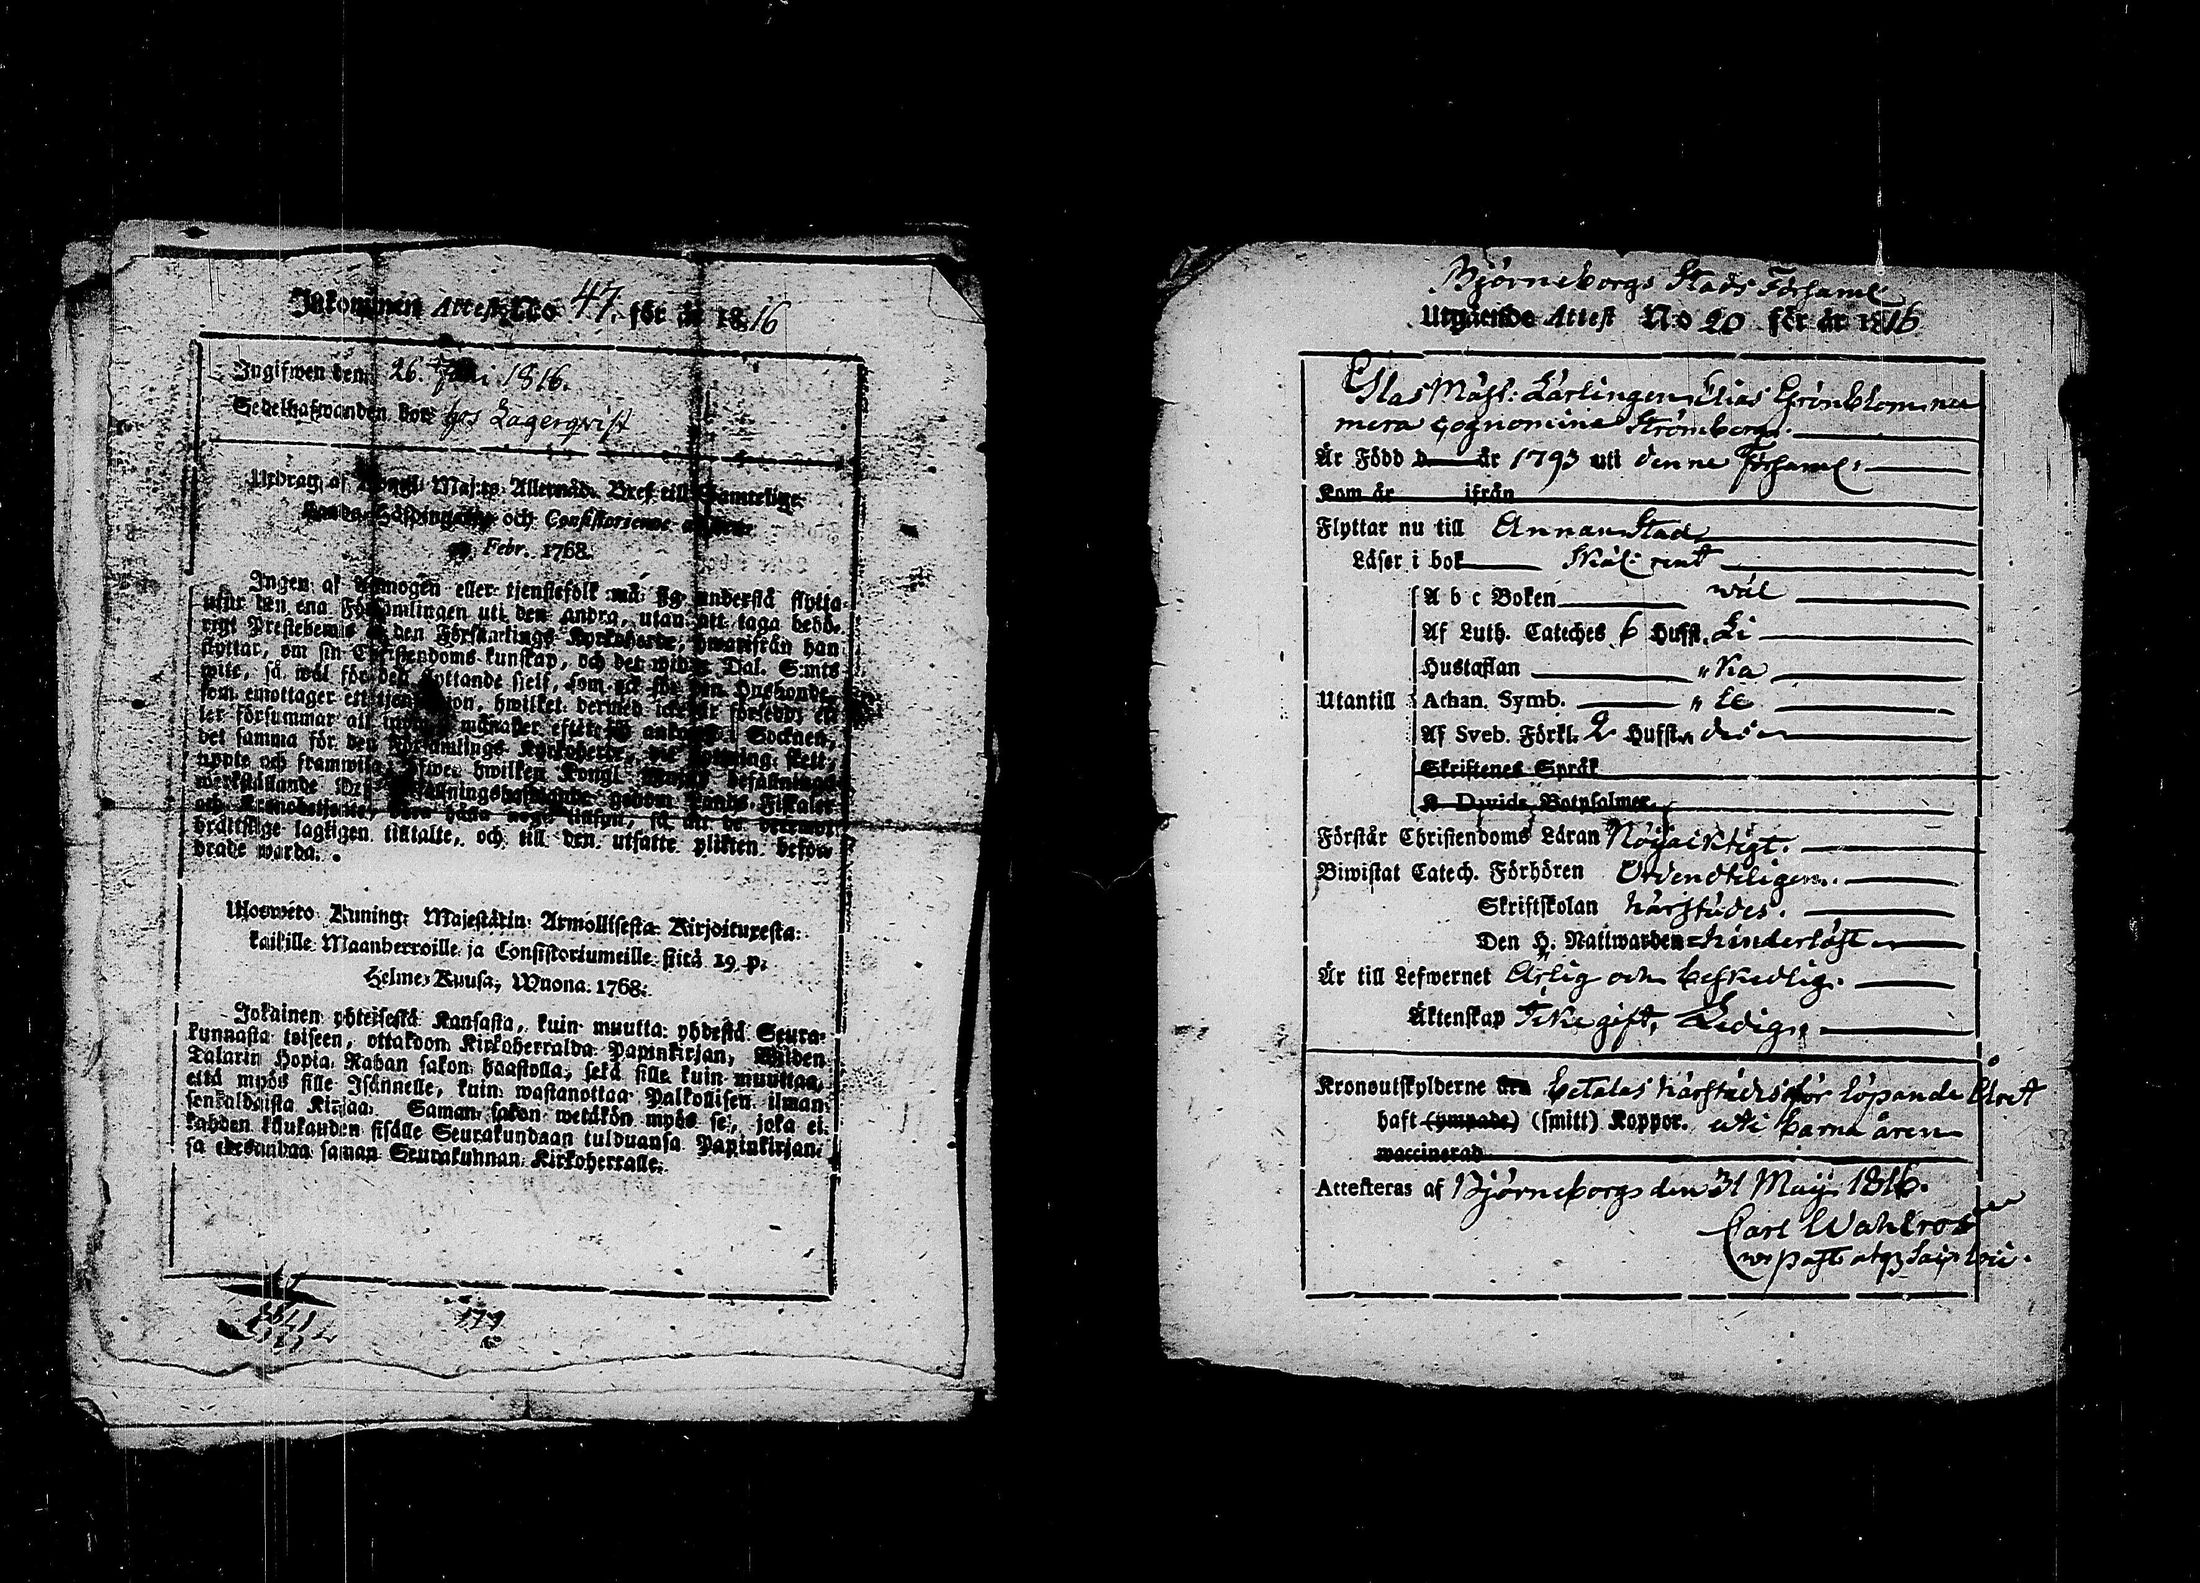 Inkommen Attest No 47. för år 1816
Ingifwen den 26. Juni 1816.
Sedelhafwanden bor hos Lagerqvist
Utdrag af Kongl. Maj:ts Allernåd. Bref till samtelige
Lands-Höfdingarne och Consistorierne af den
19 Febr. 1768.
Ingen af Allmogen eller tjenstefolk må sig understå flytta
utur den ena Församlingen uti den andra, utan att taga behö-
rigt Prestebewis af den Församlings Kyrkoherde, hwarifrån han
flyttar, om sin Christendoms kunskap, och det wid 2 Dal. S:mts
wite, så wäl för den flyttande sjelf, som ock för den Husbonde,
som emottager ett tjenstehjon, hwilket dermed icke är försedt; el-
ler försummar att inom månader efter ankomst i Socknen,
det samma för den Församlings Kyrkoherde, der flyttning skett,
uppte och framwisa; öfwer hwilken Kongl. Maj:ts befallnings
werkställande Dess Befallningshafwande genom Lands-Fiskaler
och Kronobetjente, böra hafa noga tillsyn, så att de deremot
bråttslige lagligen tilltalte, och till den utsatte plikten beford-
rade warda.
Uloswéto Kuning: Majestätin Armollisesta Kirjoituxesta
kaikille Maanherroille ja Consistoriumeille siitä 19 p:
Helme-Kuusa, Wuona 1768.
Jokainen yhteisestä Kansasta, kuin muutta yhdestä Seura-
kunnasta toiseen, ottakoon Kirkoherralda Papinkirjan, Kahden
Talarin Hopia Rahan sakon haastolla, sekä sille kuin muuttaa,
että myös sille Isännelle, kuin wastanottaa Palkollisen ilman
senkaldaista Kirjaa. Saman sakon wetäkön myös se, joka ei
kahden kuukauden sisälle Seurakundaan tulduansa Papinkirjan-
sa edesanna saman Seurakunnan Kirkoherralle.
Björneborgs Stads Församl
Utgående Attest No 20 för år 1816
Glas Mäst: Lärlingen Elias Grönblom, nu
mera cognomine Strömberg.
Är Född d år 1793 uti denne Församl:
Kom år ifrån
Flyttar nu till Annan Stad
Läser i bok Skäl. rent
A b c Boken wäl
Af Luth. Cateches 6 Hufst. Li
Hustaflan " ka
Utantill Athan. Symb. " le
Af Sveb. Förkl. 2 Hufst. des
Skriftenes Språk
K. Davids Botpsalmer
Förstår Christendoms Läran Nöjaktigt.
Biwistat Catech. Förhören Ordenteligen.
Skriftskolan härstädes.
Den H. Nattwarden hinderlöst
Är till Lefwernet Ärlig och beskedlig.
Äktenskap Icke gift, Ledig,
Kronoutskylderne äro betalas härstädes för löpande året
haft (ympade) (smitt) Koppor. uti barna åren
waccinerad
Attesteras af Björneborg den 31 Maij 1816.
Carl Wahlroos